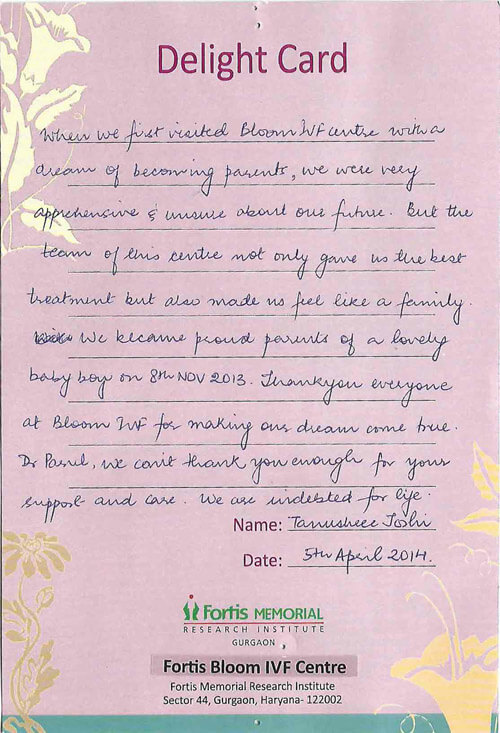 Delight Card
When we first visited Bloom IVF centre with a
dream of becoming parents, we were very
apprehensive & unsure about our future. But the
team of this centre not only gave us the best
treatment but also made us feel like a family.
We became proud parents of a lovely
baby boy on 8th NOV 2013. Thankyou everyone
at Bloom IVF for making our dream come true.
Dr Parul, we can't thank you enough for your
support and care. We are indebted for life.
Name: Tanushree Joshi
Date: 5th April 2014.
Fortis MEMORIAL
RESEARCH INSTITUTE
GURGAON
Fortis Bloom IVF Centre
Fortis Memorial Research Institute
Sector 44, Gurgaon, Haryana- 122002